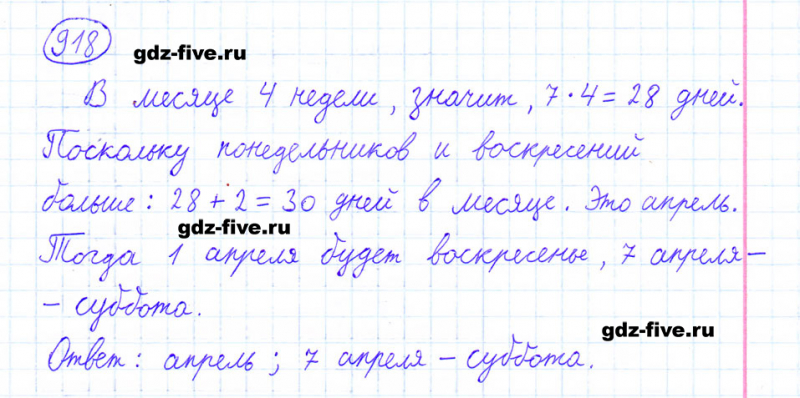 918
gdz-five.ru
В месяце 4 недели, значит, 7·4=28 дней.
Поскольку понедельников и воскресений
больше: 28+2=30 дней в месяце. Это апрель.
gdz-five.ru
Тогда 1 апреля будет воскресенье, 7 апреля –
– суббота.
gdz-five.ru
Ответ: апрель; 7 апреля – суббота.